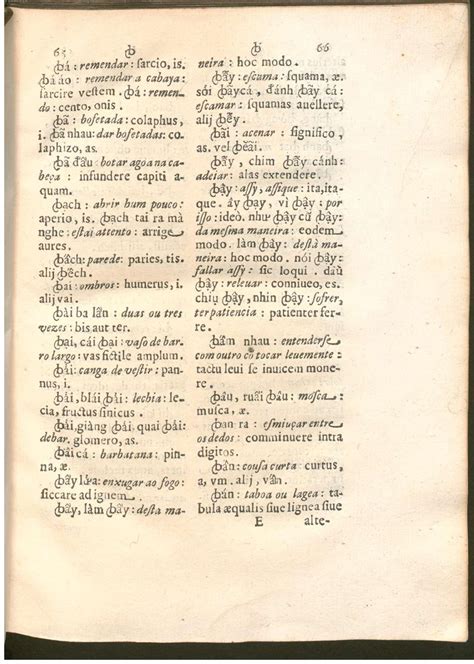 65 ꞗ
ꞗá: remendar: ſarcio, is.
ꞗá áo: remendar a cabaya:
ſarcire veſtem. ꞗá: remen-
do: cento, onis.
ꞗã: bofetada: colaphus,
i. ꞗã nhau: dar bofetadas: co-
laphizo, as.
ꞗã đầu: botar agoa na ca-
beça: infundere capiti a-
quam.
ꞗạch: abrir hum pouco:
aperio, is. ꞗạch tai ra mà
nghe: eſtai attento: arrige
aures.
ꞗách: parede: paries, tis.
alij ꞗếch.
ꞗai: ombros: humerus, i.
alij vai.
ꞗài ba lần: duas ou tres
vezes: bis aut ter.
ꞗại, cái ꞗại: vaſo de bar-
ro largo: vas fictile amplum.
ꞗải: canga de veſtir: pan-
nus, i.
ꞗải, blái ꞗải: lechia: le-
cia, fructus ſinicus.
ꞗái giàng, quai ꞗái:
debar. glomero, as.
ꞗây cá: barbatana: pin-
na, æ.
ꞗây lửa: enxugar ao fogo:
ſiccare ad ignem.
ꞗậy, làm ꞗậy: deſta ma-
ꞗ 66
neira: hoc modo.
ꞗẩy: eſcuma: ſquama, æ.
ꞗẩy cá, đánh ꞗẩy cá:
eſcamar: ſquamas auellere,
alij
ꞗãi: acenar: ſignifico,
as. vel ꞗẽãi.
ꞗẫy, chim ꞗẫy cánh:
adeiar: alas extendere.
ꞗậy: aſſy, aſſique: ita, ita-
que. ấy ꞗậy, vì ꞗậy: por
iſſo: ideò. như ꞗậy:
da meſma maneira: eodem
modo. làm ꞗậy: deſta ma-
neira: hoc modo. nói ꞗậy:
fallar aſſy: ſic loqui.
ꞗậy: releuar: conniueo, es.
chịu ꞗậy, nhịn ꞗậy: ſofrer,
ter paciencia: patienter fer-
re.
ꞗầm nhau: entenderſe
com outro co tocar leuemente:
tactu leui ſe inuicem mone-
re.
ꞗâu, ruãi ꞗâu: moſca:
muſca, æ.
ꞗan ra: eſmiuçar entre
os dedos: comminuere intra
digitos.
ꞗắn: couſa curta: curtus,
a, vm. alj, vắn.
ꞗán: taboa ou lagea: ta-
bula æqualis ſiue lignea ſiue
E alte-